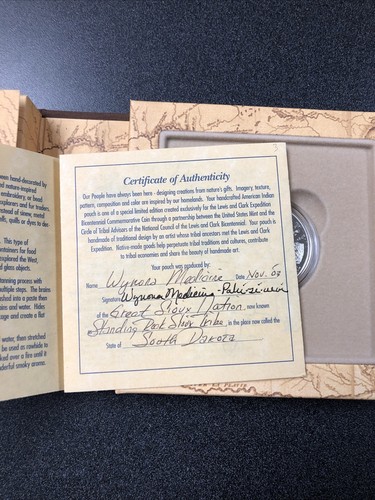 been hand-decorated by
nature-inspired
embroidery, or bead
explorers and for traders.
instead of stone, metal
quills, quills or dyes to
This type of
containers for food
explored the West,
glass objects.
tanning process with
multiple steps. The brains
into a paste then
and water. Hides
and create a flat
water, then stretched
be used as rawhide to
over a fire until it
wonderful smoky aroma.
Certificate of Authenticity
Our People have always been here - designing creations from nature's gifts. Imagery, texture,
pattern, composition and color are inspired by our homelands. Your handcrafted American Indian
pouch is one of a special limited edition created exclusively for the Lewis and Clark Expedition
Bicentennial Commemorative Coin through a partnership between the United States Mint and the
Circle of Tribal Advisors of the National Council of the Lewis and Clark Bicentennial. Your pouch is
handmade of traditional design by an artist whose tribal ancestors met the Lewis and Clark
Expedition. Native-made goods help perpetuate tribal traditions and cultures, contribute
to tribal economies and share the beauty of handmade art.
Your pouch was produced by:
Name Wynona Medicine Date Nov. 03
Signature Wynona Medicine
of the Great Sioux Nation, now known
Standing Rock Sioux Tribe, in the place now called the
State of South Dakota